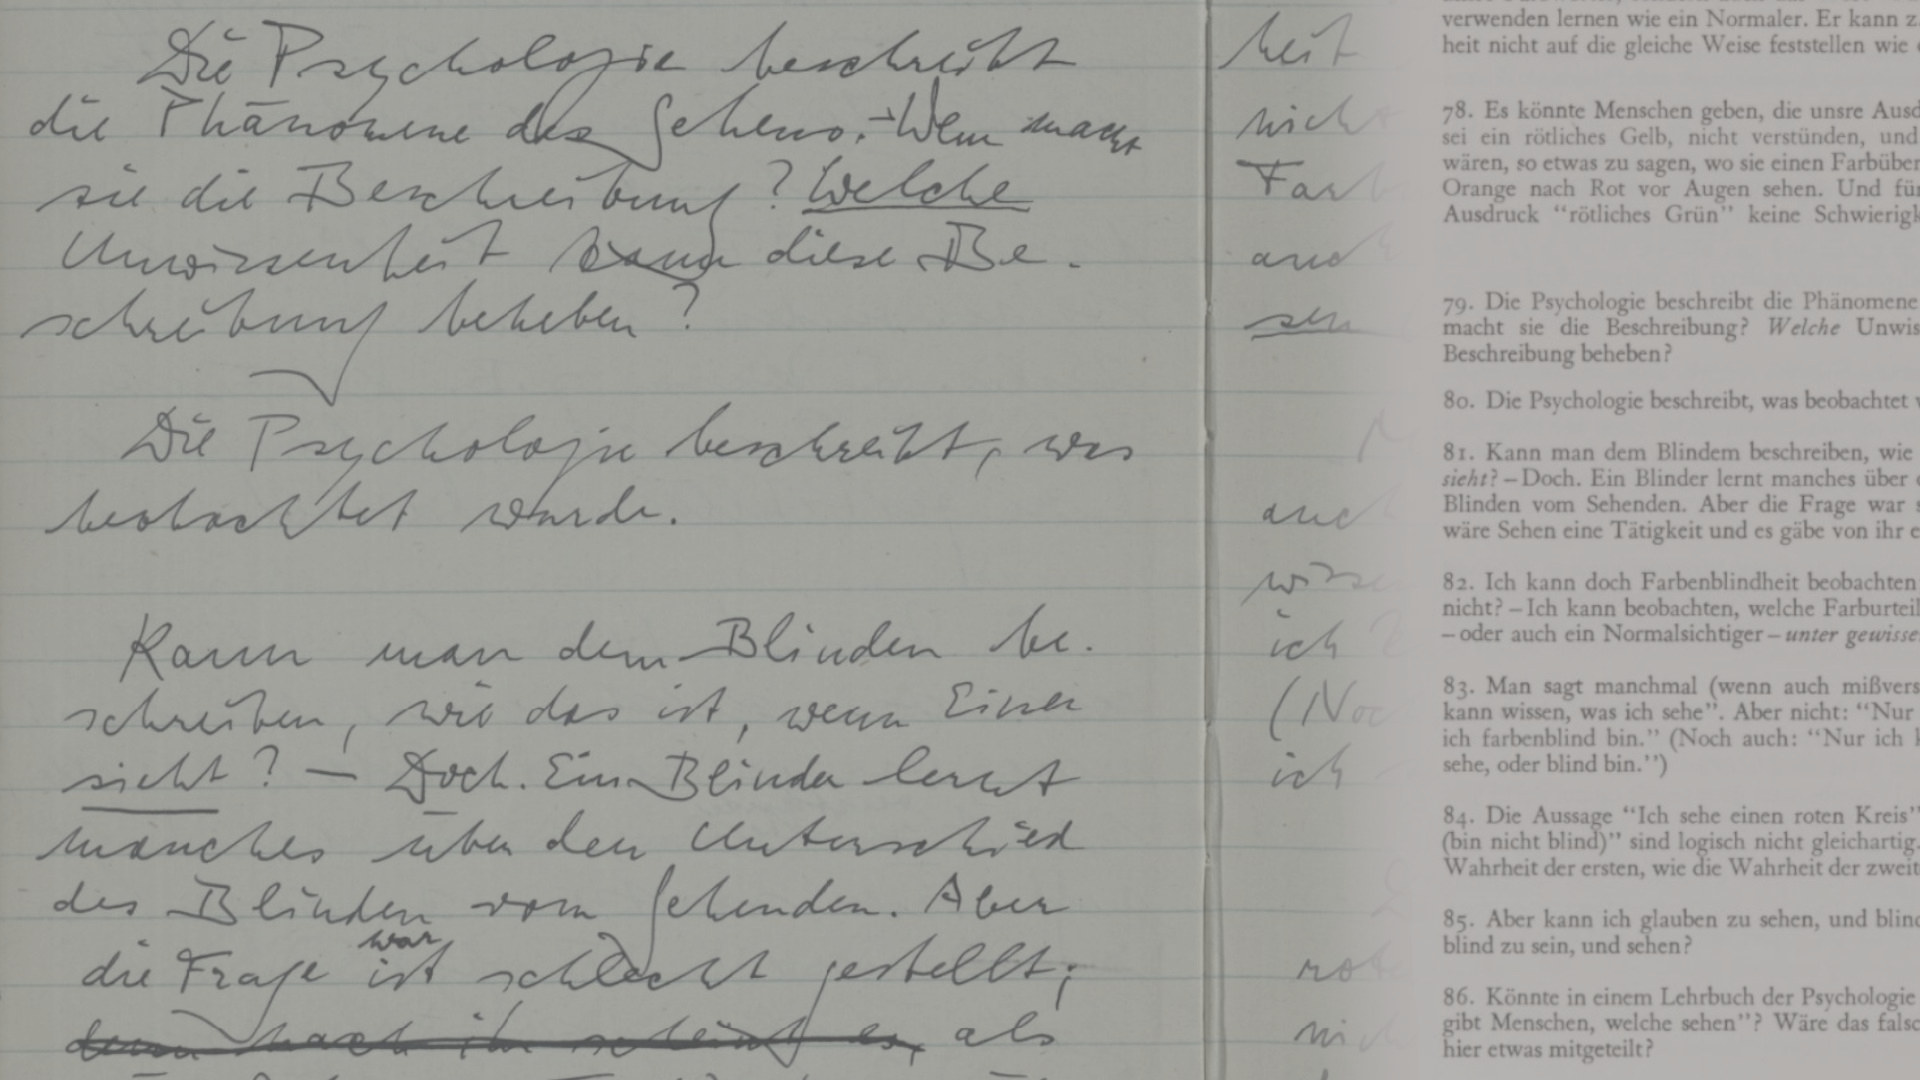 Die Psychologie beschreibt
die Phänomene des Sehens. – Wem macht
sie die Beschreibung? Welche
Unwissenheit kann diese Be-
schreibung beheben?
Die Psychologie beschreibt, was
beobachtet wurde.
Kann man dem Blinden be-
schreiben, wie das ist, wenn Einer
sieht? – Doch. Ein Blinder lernt
manches über den Unterschied
des Blinden vom Sehenden. Aber
die Frage war
ist schlecht gestellt;
denn nach ihr scheint es, als
heit
nich
Far
auch
sen
auc
wisse
ich
(Noc
ich
rot
nic
verwenden lernen wie ein Normaler. Er kann z.
heit nicht auf die gleiche Weise feststellen wie
78. Es könnte Menschen geben, die unsre Ausd
sei ein rötliches Gelb, nicht verstünden, und
wären, so etwas zu sagen, wo sie einen Farbüber
Orange nach Rot vor Augen sehen. Und für
Ausdruck “rötliches Grün” keine Schwierigk
79. Die Psychologie beschreibt die Phänomene
macht sie die Beschreibung? Welche Unwis
Beschreibung beheben?
80. Die Psychologie beschreibt, was beobachtet
81. Kann man dem Blindem beschreiben, wie
sieht? – Doch. Ein Blinder lernt manches über
Blinden vom Sehenden. Aber die Frage war s
wäre Sehen eine Tätigkeit und es gäbe von ihr e
82. Ich kann doch Farbenblindheit beobachten
nicht? – Ich kann beobachten, welche Farburteil
– oder auch ein Normalsichtiger – unter gewisse
83. Man sagt manchmal (wenn auch mißvers
kann wissen, was ich sehe”. Aber nicht: “Nur
ich farbenblind bin.” (Noch auch: “Nur ich k
sehe, oder blind bin.”)
84. Die Aussage “Ich sehe einen roten Kreis”
(bin nicht blind)” sind logisch nicht gleichartig.
Wahrheit der ersten, wie die Wahrheit der zweit
85. Aber kann ich glauben zu sehen, und blind
blind zu sein, und sehen?
86. Könnte in einem Lehrbuch der Psychologie
gibt Menschen, welche sehen”? Wäre das falsc
hier etwas mitgeteilt?